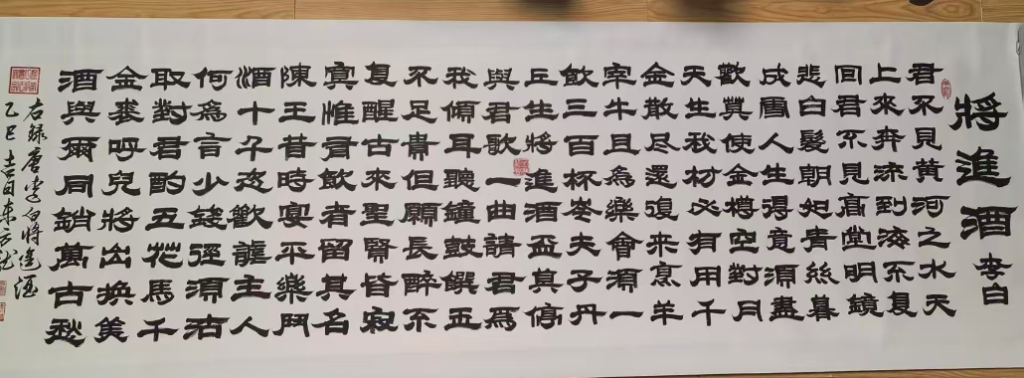 將進酒 李白
君不見黃河之水天
上來奔流到海不復
回君不見高堂明鏡
悲白髮朝如青絲暮
成雪人生得意須盡
歡莫使金樽空對月
天生我材必有用千
金散尽還復來烹羊
宰牛且為樂會須一
飲三百杯岑夫子丹
丘生將進酒盃莫停
與君歌一曲請君為
我傾耳聽鐘鼓饌玉
不足貴但願長醉不
復醒古來聖賢皆寂
寞惟有飲者留其名
陳王昔時宴平樂鬥
酒十千恣歡謔主人
何為言少錢徑須沽
取對君酌五花馬千
金裘呼兒將出換美
酒與爾同銷萬古愁
右錄唐李白將進酒
乙巳吉日東方